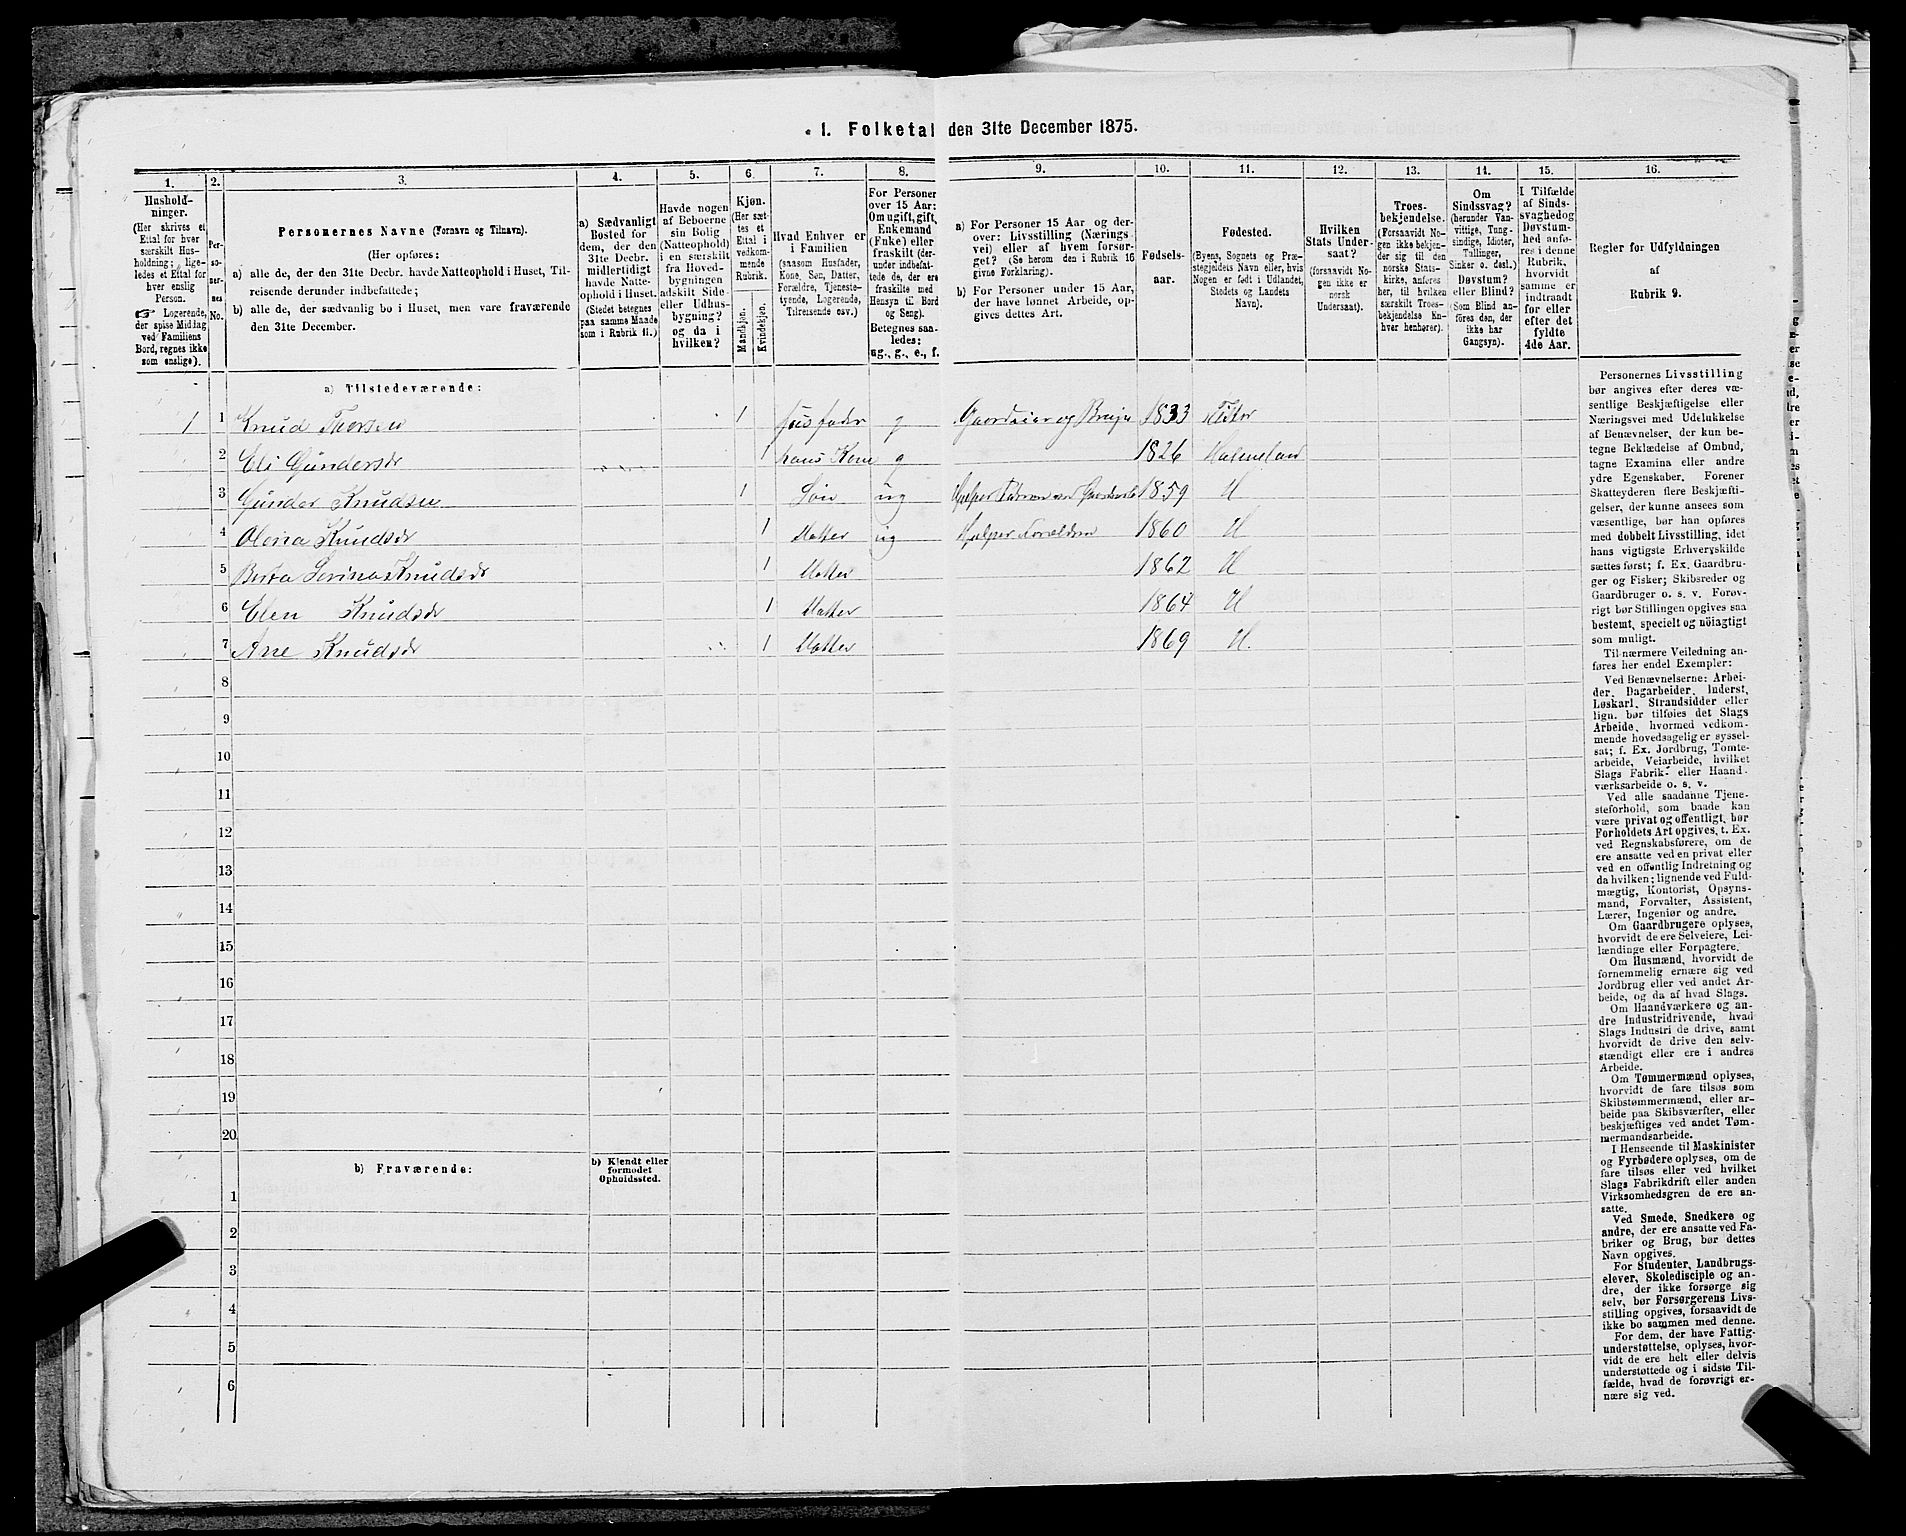 1. Folketal den 31te December 1875.
1.
2.
3.
4.
5.
6.
7.
8.
9.
10.
11.
12.
13.
14.
15.
16.
Hushold-
ninger.
(Her skrives et
Ettal for hver
særskilt Hus-
holdning; lige-
ledes et Ettal for
hver enslig
Person.
☞ Logerende,
der spise Middag
ved Familiens
Bord, regnes ikke
som enslige).
Per-
so-
ner-
nes
No.
Personernes Navne (Fornavn og Tilnavn).
(Her opføres:
a) alle de, der den 31te Decbr. havde Natteophold i Huset, Til-
reisende derunder indbefattede;
b) alle de, der sædvanlig bo i Huset, men vare fraværende
den 31te December.
a) Sædvanligt
Bosted for
dem, der den
31te Decbr.
midlertidigt
havde Natte-
ophold i Huset.
(Stedet betegnes
paa samme Maade
som i Rubrik 11.)
Havde nogen
af Beboerne
sin Bolig
(Natteophold)
i en særskilt
fra Hoved-
bygningen
adskilt Side-
eller Udhus-
bygning?
og da i
hvilken?
Kjøn.
(Her sæt-
tes et
Ettal i
vedkom-
mende
Rubrik.
Mandkjøn.
Kvindekjøn.
Hvad Enhver er
i Familien
(saasom Husfader,
Kone, Søn, Datter,
Forældre, Tjeneste-
tyende, Logerende,
Tilreisende osv.)
For Personer
over 15 Aar:
Om ugift, gift,
Enkemand
(Enke) eller
fraskilt (der-
under indbefat-
tede de, der ere
fraskilte med
Hensyn til Bord
og Seng).
Betegnes saa-
ledes:
ug., g., e., f.
a) For Personer 15 Aar og der-
over: Livsstilling (Nærings-
vei) eller af hvem forsør-
get? (Se herom den i Rubrik 16
givne Forklaring).
b) For Personer under 15 Aar,
der have lønnet Arbeide, op-
gives dettes Art.
Fødsels-
aar.
Fødested.
(Byens, Sognets og Præ-
stegjeldets Navn eller, hvis
Nogen er født i Udlandet,
Stedets og Landets
Navn).
Hvilken
Stats Under-
saat?
(forsaavidt No-
gen ikke er
norsk
Undersaat).
Troes-
bekjendelse.
(Forsaavidt No-
gen ikke bekjen-
der sig til den
norske Stats-
kirke, anføres
her, til hvilken
særskilt Troes-
bekjendelse En-
hver henhører).
Om
Sindssvag?
(herunder Van-
vittige, Tung-
sindige, Idioter,
Tullinger,
Sinker o. desl.)
Døvstum?
eller Blind?
(Som Blind an-
føres den, der
ikke har
Gangsyn).
I Tilfælde
af Sinds-
svaghed og
Døvstum-
hed anfø-
res i denne
Rubrik,
hvorvidt
samme er
indtraadt
før eller
efter det
fyldte
4de Aar.
Regler for Udfyldningen
af
Rubrik 9.
a) Tilstedeværende:
1 1 Knud Thorsen 1 Husfader g Gaardeier og Bruger 1833 Feitor
2 Eli Gundersdr 1 hans Kone g 1826 Halmeland
3 Gunder Knudsen 1 Søn ug 1859 H
4 Olena Knudsdr 1 Datter ug Hjelper Forældrene 1860 H
5 Berta Serina Knudsdr 1 Datter 1862 H
6 Elen Knudsdr 1 Datter 1864 H
7 Ane Knudsdr 1 Datter 1869 H.
8
9
10
11
12
13
14
15
16
17
18
19
20
b) Fraværende:
b) Kjendt eller
formodet
Opholdssted.
1
2
3
4
5
6
Personernes Livsstilling
bør angives efter deres væ-
sentlige Beskjæftigelse eller
Næringsvei med Udelukkelse
af Benævnelser, der kun be-
tegne Beklædelse af Ombud,
tagne Examina eller andre
ydre Egenskaber. Forener
Skatteyderen flere Beskjæfti-
gelser, der kunne ansees som
væsentlige, bør han opføres
med dobbelt Livsstilling, idet
hans vigtigste Erhvervskilde
sættes først; f. Ex. Gaardbru-
ger og Fisker; Skibsreder og
Gaardbruger o. s. v. Forøv-
rigt bør Stillingen opgives saa
bestemt, specielt og nöiagtigt
som muligt.
Til nærmere Veiledning an-
føres her endel Exempler:
Ved Benævnelserne: Arbei-
der, Dagarbeider, Inderst,
Løskarl, Strandsidder eller
lign. bør tilføies det Slags
Arbeide, hvormed vedkom-
mende hovedsagelig er syssel-
sat; f. Ex. Jordbrug, Tomte-
arbeide, Veiarbeide, hvilket
Slags Fabrik- eller Haand-
værksarbeide o. s. v.
Ved alle saadanne Tjene-
steforhold, som baade kan
være privat og offentligt, bør
Forholdets Art opgives, t. Ex.
ved Regnskabsførere, om de
ere ansatte ved en privat eller
ved en offentlig Indretning og
da hvilken; lignende ved Fuld-
mægtig, Kontorist, Opsyns-
mand, Forvalter, Assistent,
Lærer, Ingeniør og andre.
Om Gaardbrugere oplyses,
hvorvidt de ere Selveiere, Lei-
lændinge eller Forpagtere.
Om Husmænd, hvorvidt de
fornemmelig ernære sig ved
Jordbrug eller ved andet Ar-
beide, og da af hvad Slags.
Om Haandværkere og an-
dre Industridrivende, hvad
Slags Industri de drive, samt
hvorvidt de drive den selv-
stændigt eller ere i andres
Arbeide.
Om Tømmermænd oplyses,
hvorvidt de fare tilsøs som
Skibstømmermænd, eller ar-
beide paa Skibsværfter, eller
beskjæftiges ved andet Tøm-
mermandsarbeide.
I Henseende til Maskinister
og Fyrbødere oplyses, om de
fare tilsøs eller ved hvilket
Slags Fabrikdrift eller anden
Virksomhedsgren de ere an-
satte.
Ved Smede, Snedkere og
andre, der ere ansatte ved Fa-
briker og Brug, bør dettes
Navn opgives.
For Studenter, Landbrugs-
elever, Skoledisciple og an-
dre, der ikke forsørge sig
selv, bør Forsørgerens Livs-
stilling opgives, forsaavidt de
ikke bo sammen med denne.
For dem, der have Fattig-
understøttelse, oplyses, hvor-
vidt de ere helt eller delvis
understøttede og i sidste Til-
fælde, hvad de forøvrigt er-
nære sig ved.